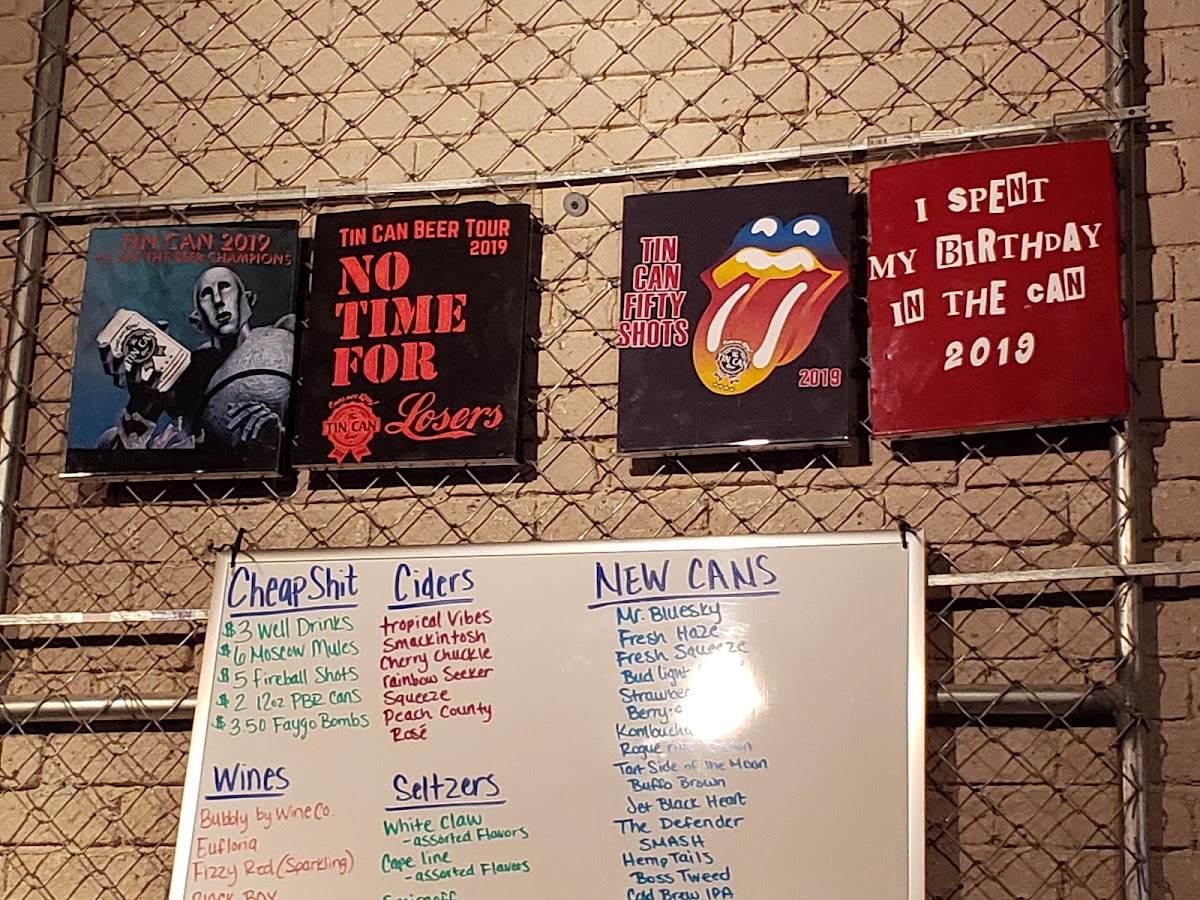 TIN CAN 2019
WE ARE THE BEER CHAMPIONS
TIN CAN BEER TOUR
2019
NO
TIME
FOR
Losers
TIN CAN
TIN
CAN
FIFTY
SHOTS
TIN CAN
2019
I SPENT
MY BIRTHDAY
IN THE CAN
2019
Cheap Shit
$3 Well Drinks
$6 Moscow Mules
$5 Fireball Shots
$2 12oz PBR cans
$3.50 Faygo Bombs
Wines
Bubbly by Wine Co.
Eufloria
Fizzy Red (Sparkling)
BLACK BOX
Ciders
tropical Vibes
Smackintosh
Cherry Chuckle
rainbow Seeker
Squeeze
Peach County
Rosé
Seltzers
White Claw
-assorted Flavors
Cape line
-assorted Flavors
NEW CANS
Mr. Bluesky
Fresh Haze
Fresh Squeeze
Bud light
Berry-
Rogue
Tart Side of the Moon
Buffo Brown
Jet Black Heart
The Defender
SMASH
Hemp Tails
Boss Tweed
Cold Brew IPA